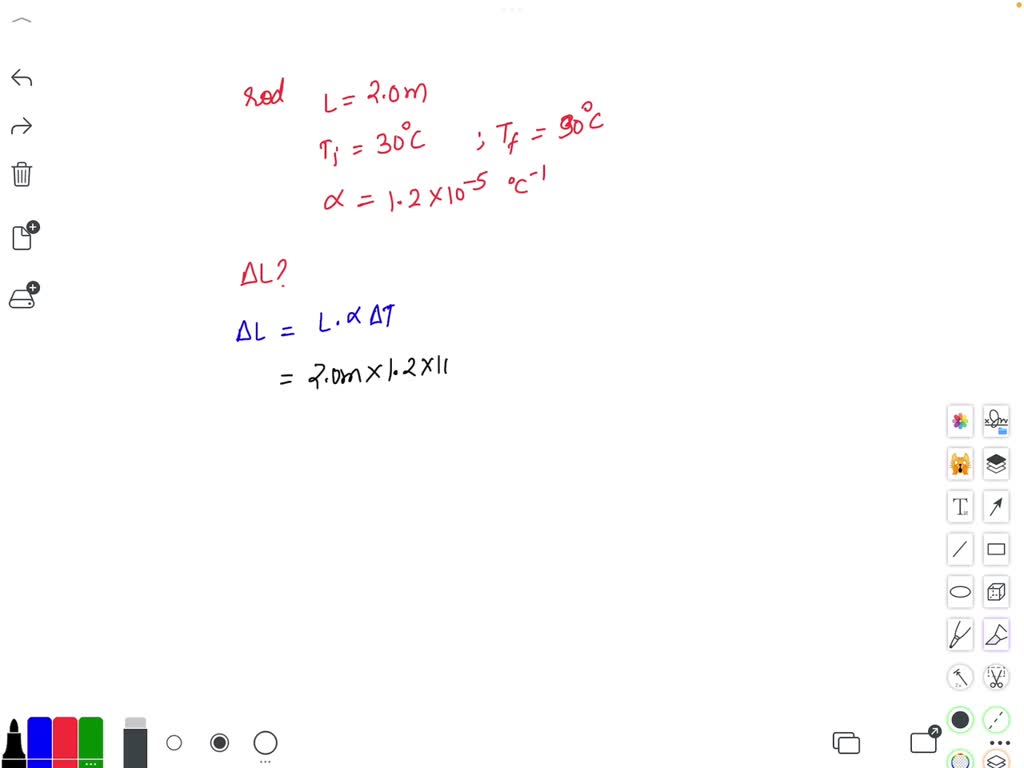 rod L = 2.0m
Ti = 30°C ; Tf = 90°C
α = 1.2 × 10⁻⁵ °C⁻¹
ΔL?
ΔL = L. α ΔT
= 2.0m × 1.2 × 1